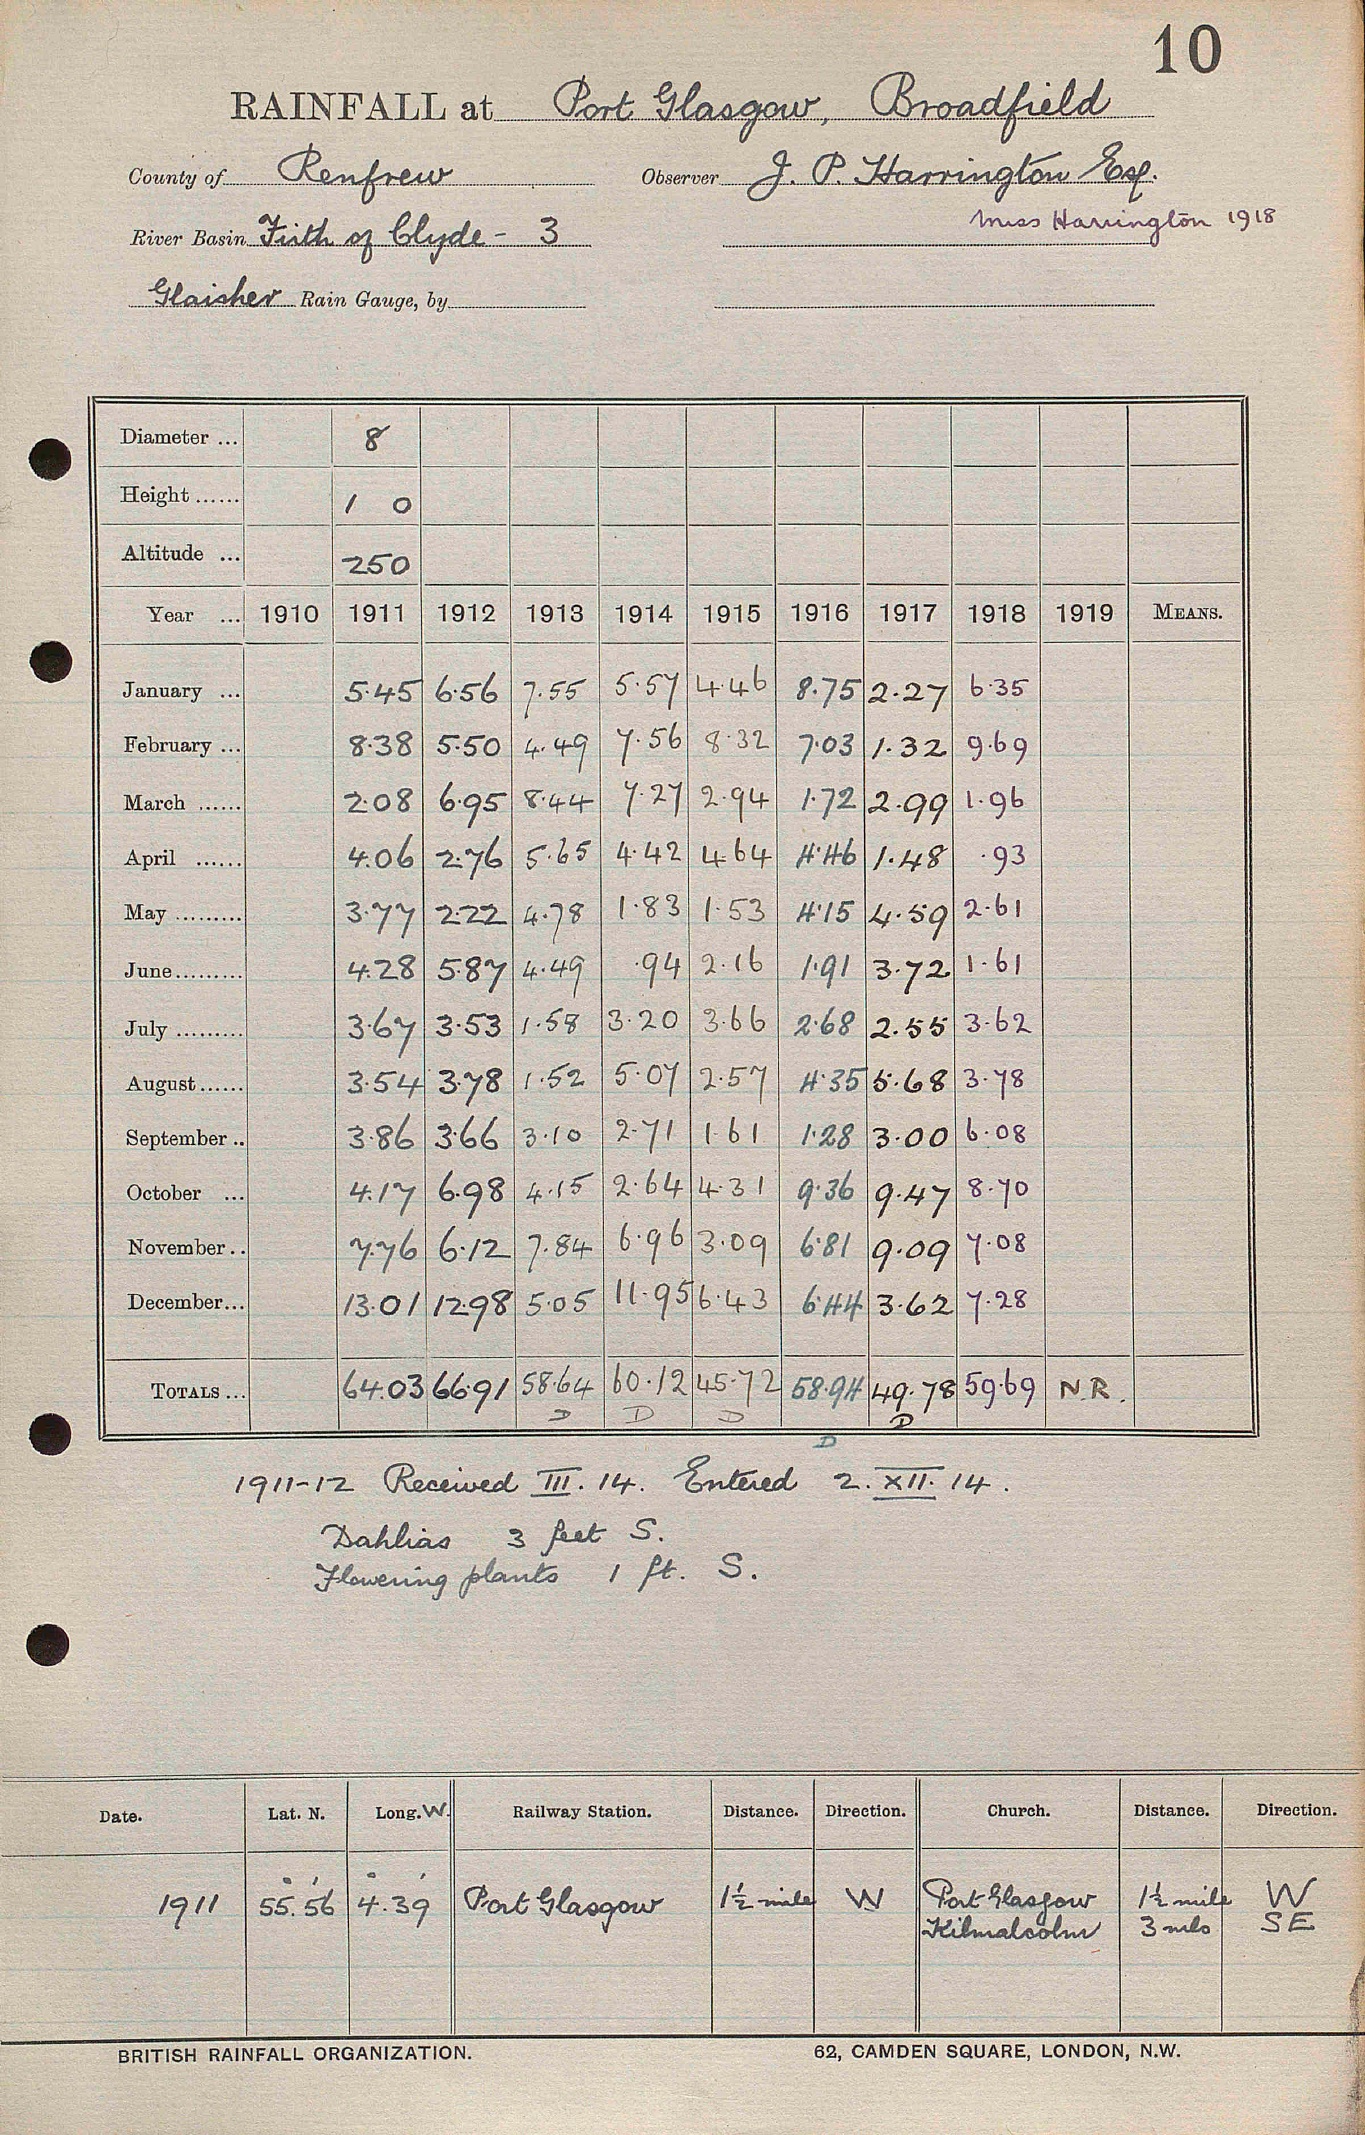 10
RAINFALL at Port Glasgow, Broadfield
County of Renfrew Observer J. P. Harrington Esq.
Miss Harrington 1918
River Basin Firth of Clyde - 3
Glaisher Rain Gauge, by
Diameter ... 8
Height ...... 1 0
Altitude ... 250
Year ... 1910 1911 1912 1913 1914 1915 1916 1917 1918 1919 MEANS.
January ... 5.45 6.56 7.55 5.57 4.46 8.75 2.27 6.35
February ... 8.38 5.50 4.49 7.56 8.32 7.03 1.32 9.69
March ...... 2.08 6.95 8.44 7.27 2.94 1.72 2.99 1.96
April ...... 4.06 2.76 5.65 4.42 4.64 4.46 1.48 .93
May ......... 3.77 2.22 4.78 1.83 1.53 4.15 4.59 2.61
June......... 4.28 5.87 4.49 .94 2.16 1.91 3.72 1.61
July ......... 3.67 3.53 1.58 3.20 3.66 2.68 2.55 3.62
August...... 3.54 3.78 1.52 5.07 2.57 4.35 5.68 3.78
September .. 3.86 3.66 3.10 2.71 1.61 1.28 3.00 6.08
October ... 4.17 6.98 4.15 2.64 4.31 9.36 9.47 8.70
November .. 7.76 6.12 7.84 6.96 3.09 6.81 9.09 7.08
December... 13.01 12.98 5.05 11.95 6.43 6.44 3.62 7.28
TOTALS ... 64.03 66.91 58.64 60.12 45.72 58.94 49.78 59.69 N.R.
D D D D D
1911-12 Received III. 14. Entered 2. XII. 14.
Dahlias 3 feet S.
Flowering plants 1 ft. S.
Date. Lat. N. Long. W. Railway Station. Distance. Direction. Church. Distance. Direction.
1911 55°.56' 4°.39' Port Glasgow 1½ mile W Port Glasgow 1½ mile W
Kilmalcolm 3 mls SE
BRITISH RAINFALL ORGANIZATION. 62, CAMDEN SQUARE, LONDON, N.W.